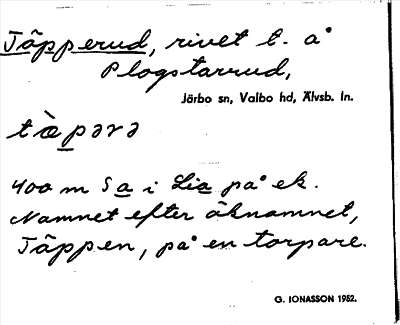 Täpperud, rivet t. å
Plogstarrud,
Järbo sn, Valbo hd, Älvsb. ln.
tæ̀pərə
400 m S a i Lia på ek.
Namnet efter öknamnet,
Täppen, på en torpare.
G. IONASSON 1952.